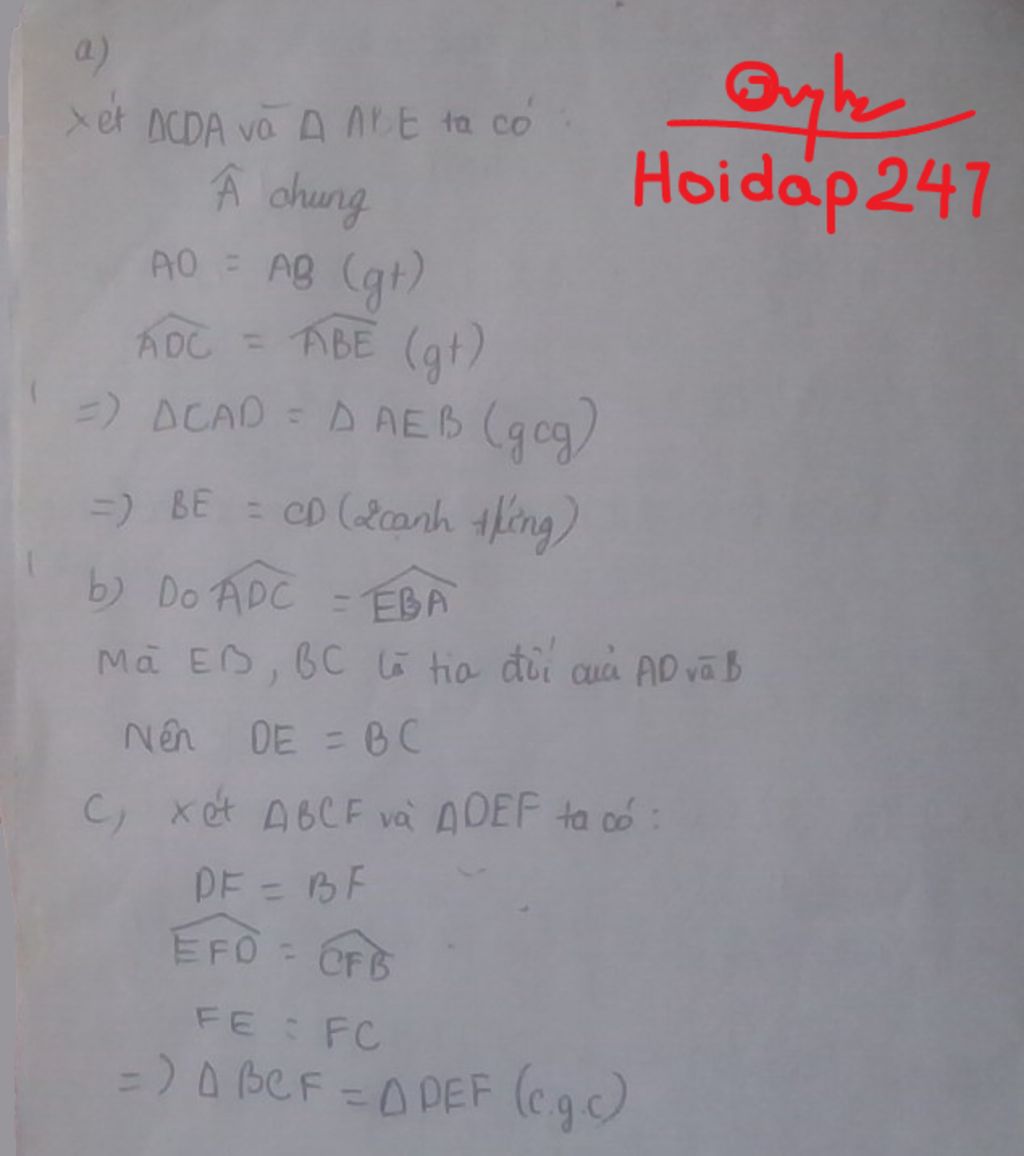 a)
Xét ΔCDA và Δ ABE ta có :
Â chung
AD = AB (gt)
ADC = ABE (gt)
=) ΔCAD = Δ AEB (gcg)
=) BE = CD (2 canh
b) Do ADC = EBA
Mà EB, BC là tia đối của AD và B
Nên DE = BC
C, xét ΔBCF và ΔDEF ta có :
DF = BF
EFD = CFB
FE = FC
=) Δ BCF = Δ DEF (c.g.c)
Hoidáp247